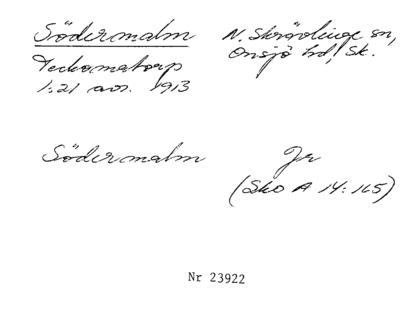 Södermalm
N. Skrävlinge sn,
Onsjö hd, Sk.
Teckomatorp
1:21 avs. 1913
Södermalm
Jr
(Sko A 14:165)
Nr 23922